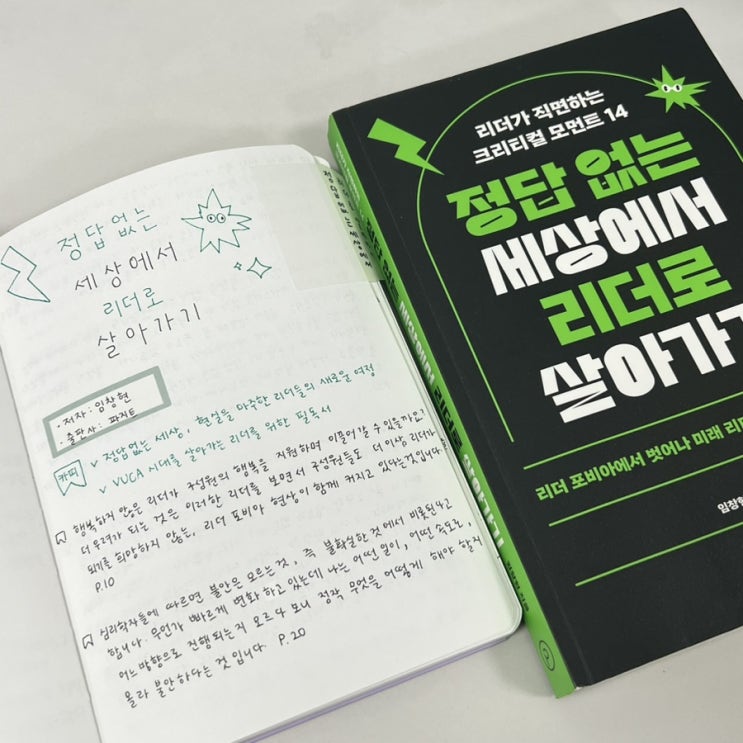 정답 없는
세상에서
리더로
살아가기
· 저자 : 임창현
· 출판사 : 파지트
카피
✓ 정답없는 세상, 현실을 마주한 리더들의 새로운 여정
✓ VUCA 시대를 살아가는 리더를 위한 필독서
행복하지 않은 리더가 구성원의 행복을 지원하며 이끌어갈 수 있을까요?
더 우려가 되는 것은 이러한 리더를 보면서 구성원들도 더 이상 리더가
되기를 희망하지 않는, 리더 포비아 현상이 함께 커지고 있다는 것입니다.
P.10
심리학자들에 따르면 불안은 모르는 것, 즉 불확실한 것에서 비롯된다고
합니다. 무언가 빠르게 변화하고 있는데 나는 어떤 일이, 어떤 속도로,
어느 방향으로 진행되는지 모르다 보니 정작 무엇을 어떻게 해야 할지
몰라 불안하다는 것입니다. P.20
정답없는 세상에서
리더가 직면하는
크리티컬 모먼트 14
정답 없는
세상에서
리더로
살아가
리더 포비아에서 벗어나 미래 리
임창
정답 없는 세상에서 리더로 살아가기